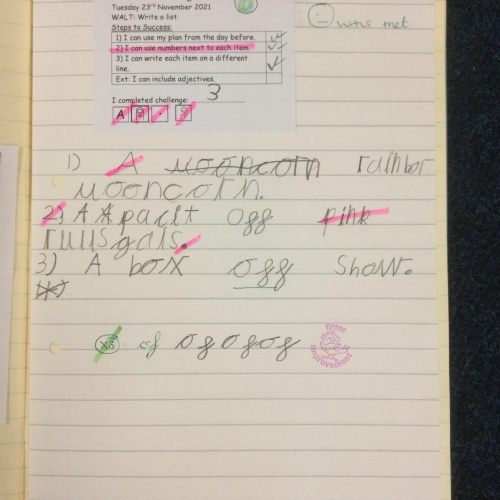 Tuesday 23rd November 2021
WALT: Write a list.
was met
Steps to Success:
1) I can use my plan from the day before.
2) I can use numbers next to each item.
3) I can write each item on a different
line.
Ext: I can include adjectives.
I completed challenge: 3
A
1) A uooncorn rainbor
uooncorn.
2) A A pacit off pink
3) A box off show.
x3 of of of of of
Great Improvement